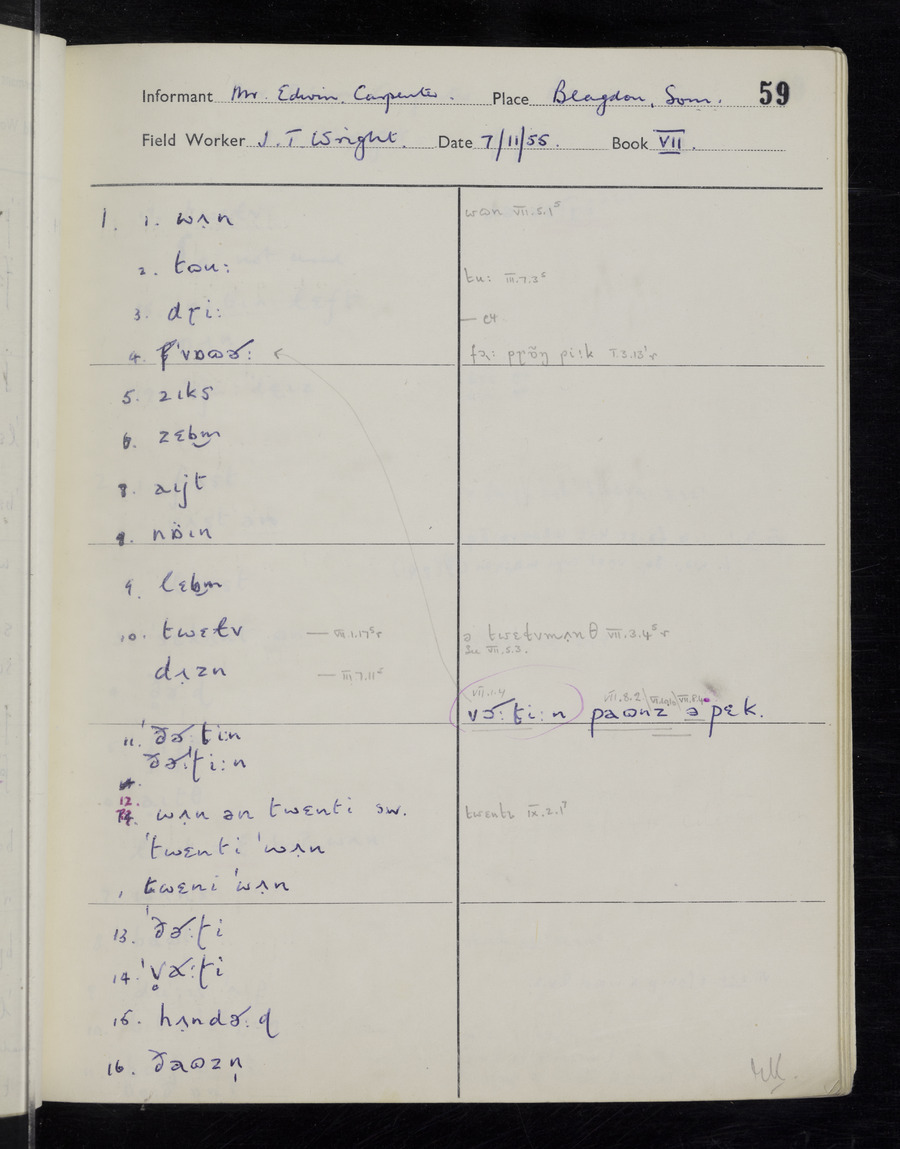 Informant Mr. Edwin. Carpenter. Place Blagdon, Som. 59
Field Worker J. T Wright. Date 7/11/55. Book VII.
1. 1. wʌ̣n
wɷn VII.5.1⁵
2. tɷu:
tu: III.7.3⁶
3. dɽi:
4.
fɔ: pɽɒ̃ŋ pi:k I.3.13'r
5. zɪks
6. zɛbm̩
8. aɪjt
nɒ̈ɪn
9. lɛbm̩
10. twɛɫv — VII.1.17⁵r
ə twɛɫvmʌ̣nθ VII.3.4⁵r
See VII.5.3.
dʌ̣zn — III.7.11⁵
VII.1.4 VII.8.2
vɚ:ʈi:n paɷnz ə pɛk.
11. 'ðɚ:ʈi:n
ðɚ:'ʈi:n
12. wʌ̣n ən twɛnti sw.
twɛntɪ IX.2.1⁷
'twɛnti 'wʌ̣n
twɛni 'wʌ̣n
13. 'ðɚ:ʈi
14. 'v̥ɑ˞:ʈi
15. hʌ̣ndɚ:ɖ
16. ðaɷzn̩